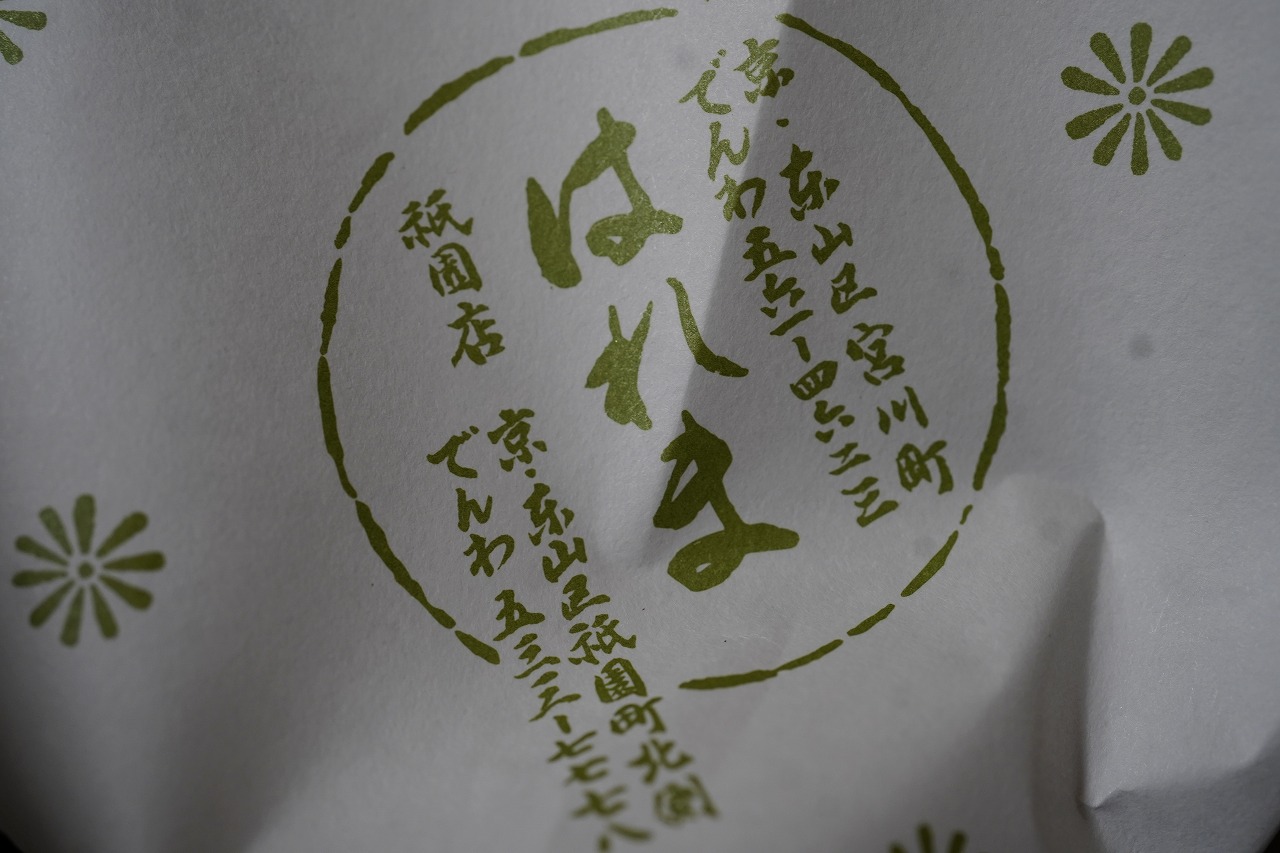 京・東山区宮川町
でんわ五六一ー四六二三
はれま
祇園店
京・東山区祇園町北側
でんわ五三三ー七七七八